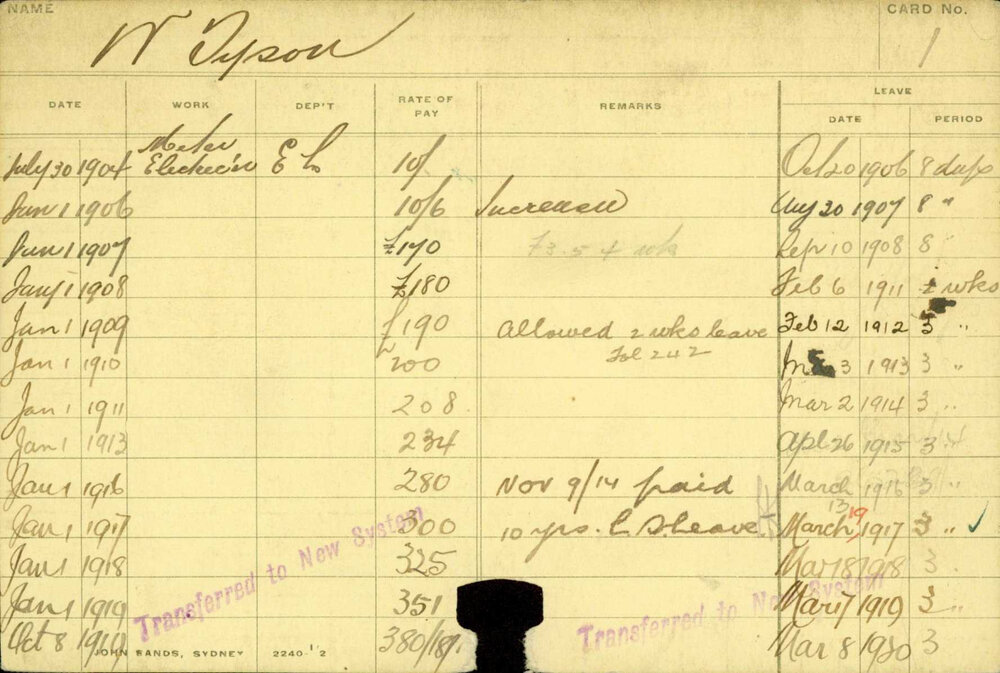 NAME CARD No.
W Tyson 1
DATE WORK DEP'T RATE OF PAY REMARKS LEAVE
DATE PERIOD
July 30 1904 Meter Electric'n E L 10/- Oct 20 1906 8 days
Jan 1 1906 10/6 Increase Aug 20 1907 8 "
Jan 1 1907 £170 £3.5.4 wk Sep 10 1908 8
Jany 1 1908 £180 Feb 6 1911 2 wks
Jan 1 1909 £190 Allowed 2 wks leave Feb 12 1912 3 "
Jan 1 1910 200 Fol 242 3 1913 3 "
Jan 1 1911 208 Mar 2 1914 3 "
Jan 1 1913 234 Apl 26 1915 3 "
Jan 1 1916 280 Nov 9/14 paid March 13 1916 3 "
Jan 1 1917 300 10 yrs. L. S. Leave March 19 1917 3 " ✓
Jan 1 1918 325 Mar 18 1918 3
Jan 1 1919 351 Mar 17 1919 3 "
Oct 8 1919 380/18/- Mar 8 1920 3
Transferred to New System
Transferred to New System
JOHN SANDS, SYDNEY 2240-1/2